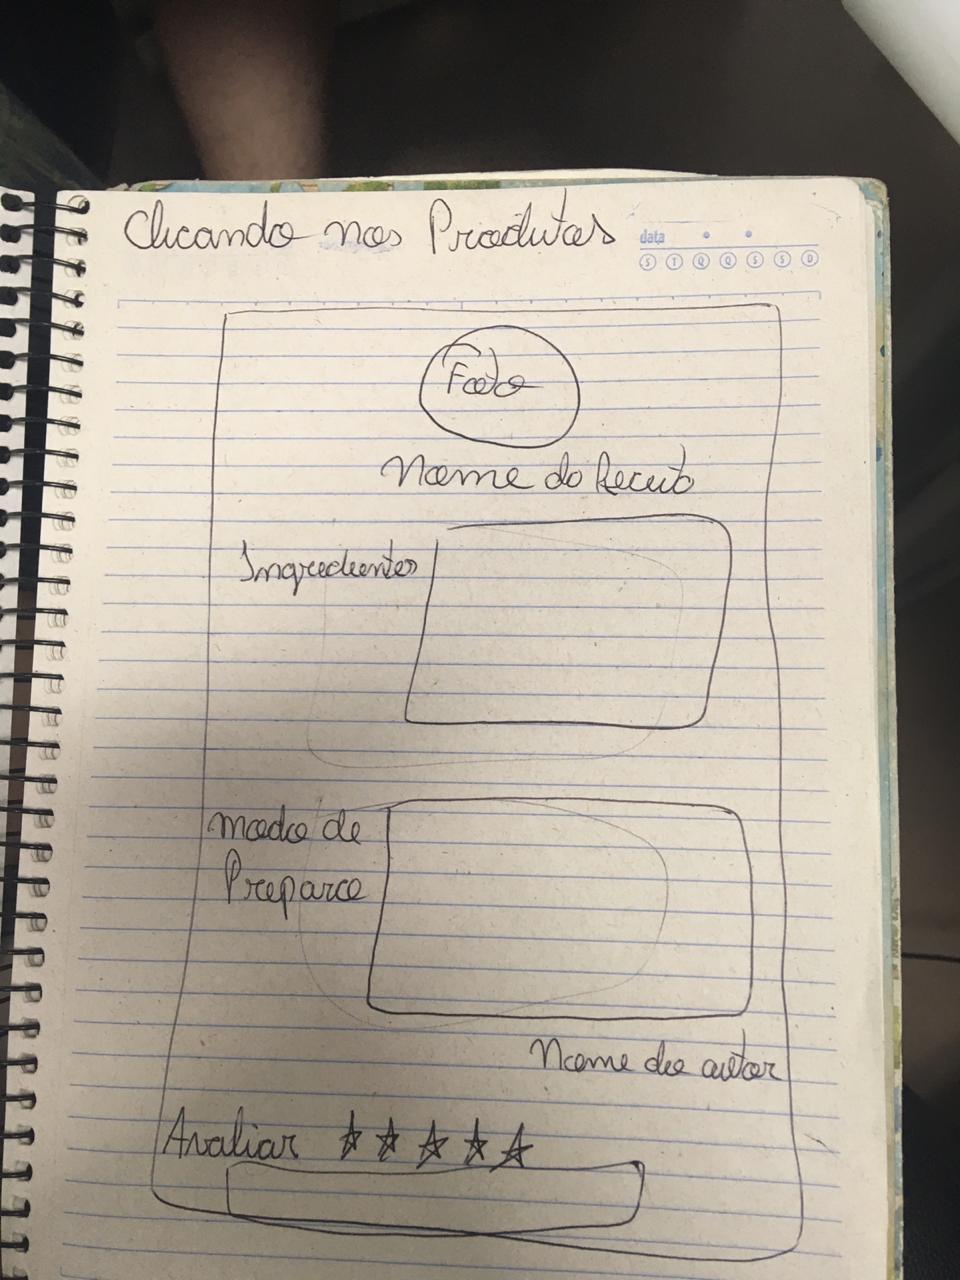 Clicando nos Produtos
data
S T Q Q S S D
Foto
Nome do Receita
Ingredientes
modo de
Preparo
Nome do autor
Avaliar ★ ★ ★ ★ ★